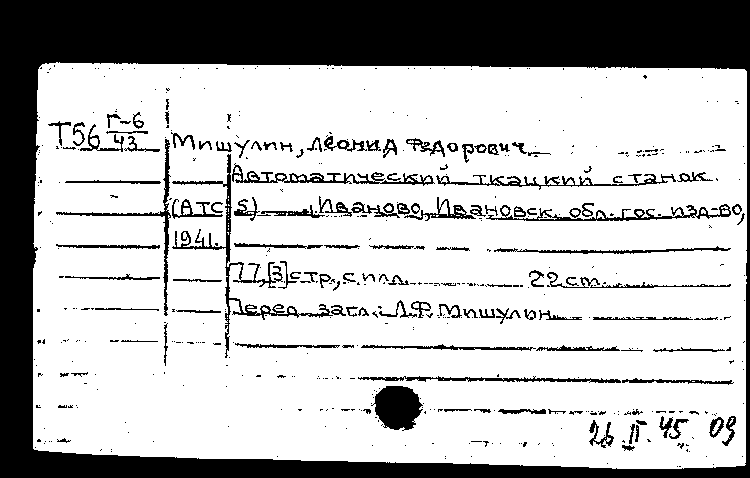 Т56 Г-6/43 Мишулин, Леонид Федорович.
Автоматический ткацкий станок.
(АТС 5) Иваново, Ивановск. обл. гос. изд-во,
1941.
77,[3] стр., с илл. 22 ст.
Перед загл.: Л.Ф. Мишулин.
26 II. 45. 09